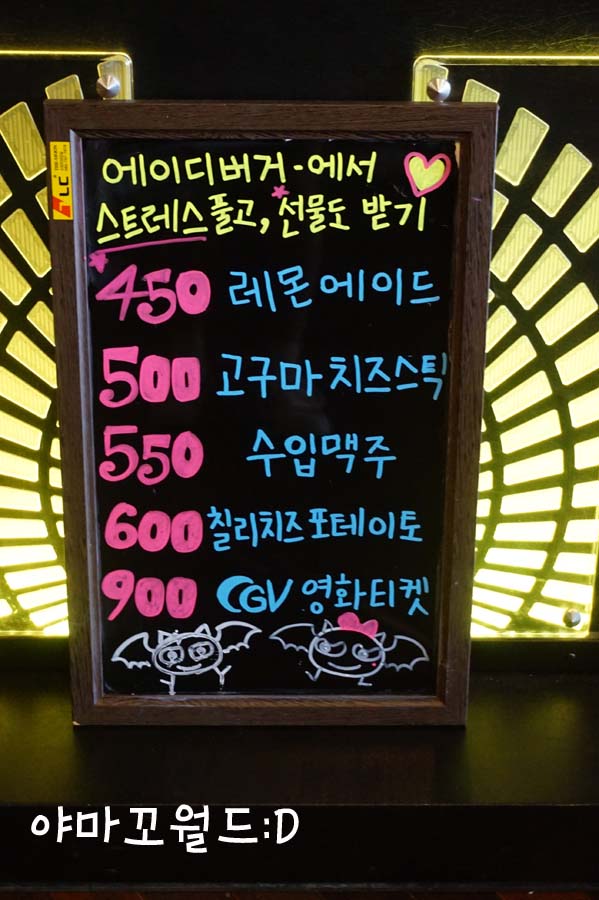 에이디버거-에서
스트레스 풀고, 선물도 받기
450 레몬에이드
500 고구마치즈스틱
550 수입맥주
600 칠리치즈포테이토
900 CGV 영화티켓
야마꼬월드:D